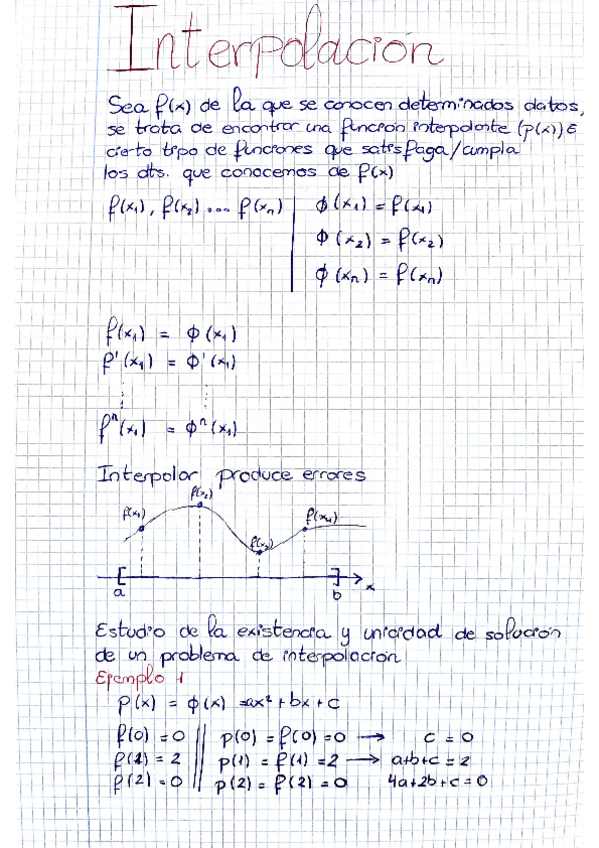 Interpolación
Sea f(x) de la que se conocen determinados datos,
se trata de encontrar una función interpolante (p(x)) ∈
cierto tipo de funciones que satisfaga/cumpla
los dts. que conocemos de f(x)
f(x₁), f(x₂) .... f(xₙ) | ϕ(x₁) = f(x₁)
ϕ(x₂) = f(x₂)
ϕ(xₙ) = f(xₙ)
f(x₁) = ϕ(x₁)
f'(x₁) = ϕ'(x₁)
⋮ ⋮
fⁿ(x₁) = ϕⁿ(x₁)
Interpolar produce errores
f(x₁) f(x₂) f(x₃) f(x₄)
a b x
Estudio de la existencia y unicidad de solución
de un problema de interpolación
Ejemplo 1
p(x) = ϕ(x) = ax² + bx + c
f(0) = 0 || p(0) = f(0) = 0 → c = 0
f(1) = 2 || p(1) = f(1) = 2 → a+b+c = 2
f(2) = 0 || p(2) = f(2) = 0 4a+2b+c = 0